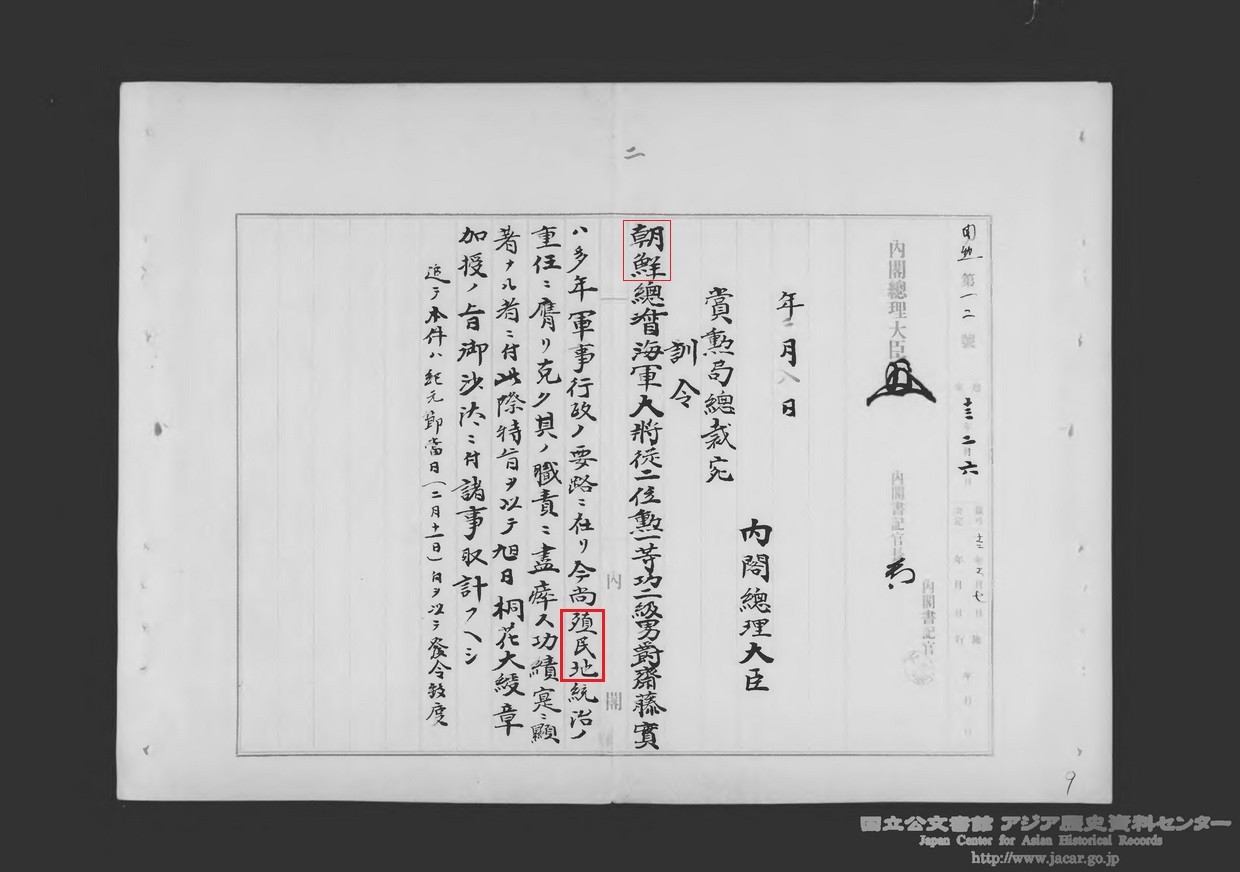 二
閣勲第一二號
十三年二月六日
内閣總理大臣
内閣書記官長
内閣書記官
年二月八日
内閣總理大臣
賞勲局總裁宛
訓令
朝鮮總督海軍大將從二位勲一等功二級男爵齋藤實
ハ多年軍事行政ノ要路ニ在リ今尚殖民地統治ノ
重任ニ膺リ克ク其ノ職責ニ盡瘁ス功績寔ニ顯
著ナル者ニ付此際特旨ヲ以テ旭日桐花大綬章
加授ノ旨御沙汰ニ付諸事取計フヘシ
追テ本件ハ紀元節當日(二月十一日)日ヲ以テ發令致度
内閣
9
国立公文書館 アジア歴史資料センター
Japan Center for Asian Historical Records
http://www.jacar.go.jp